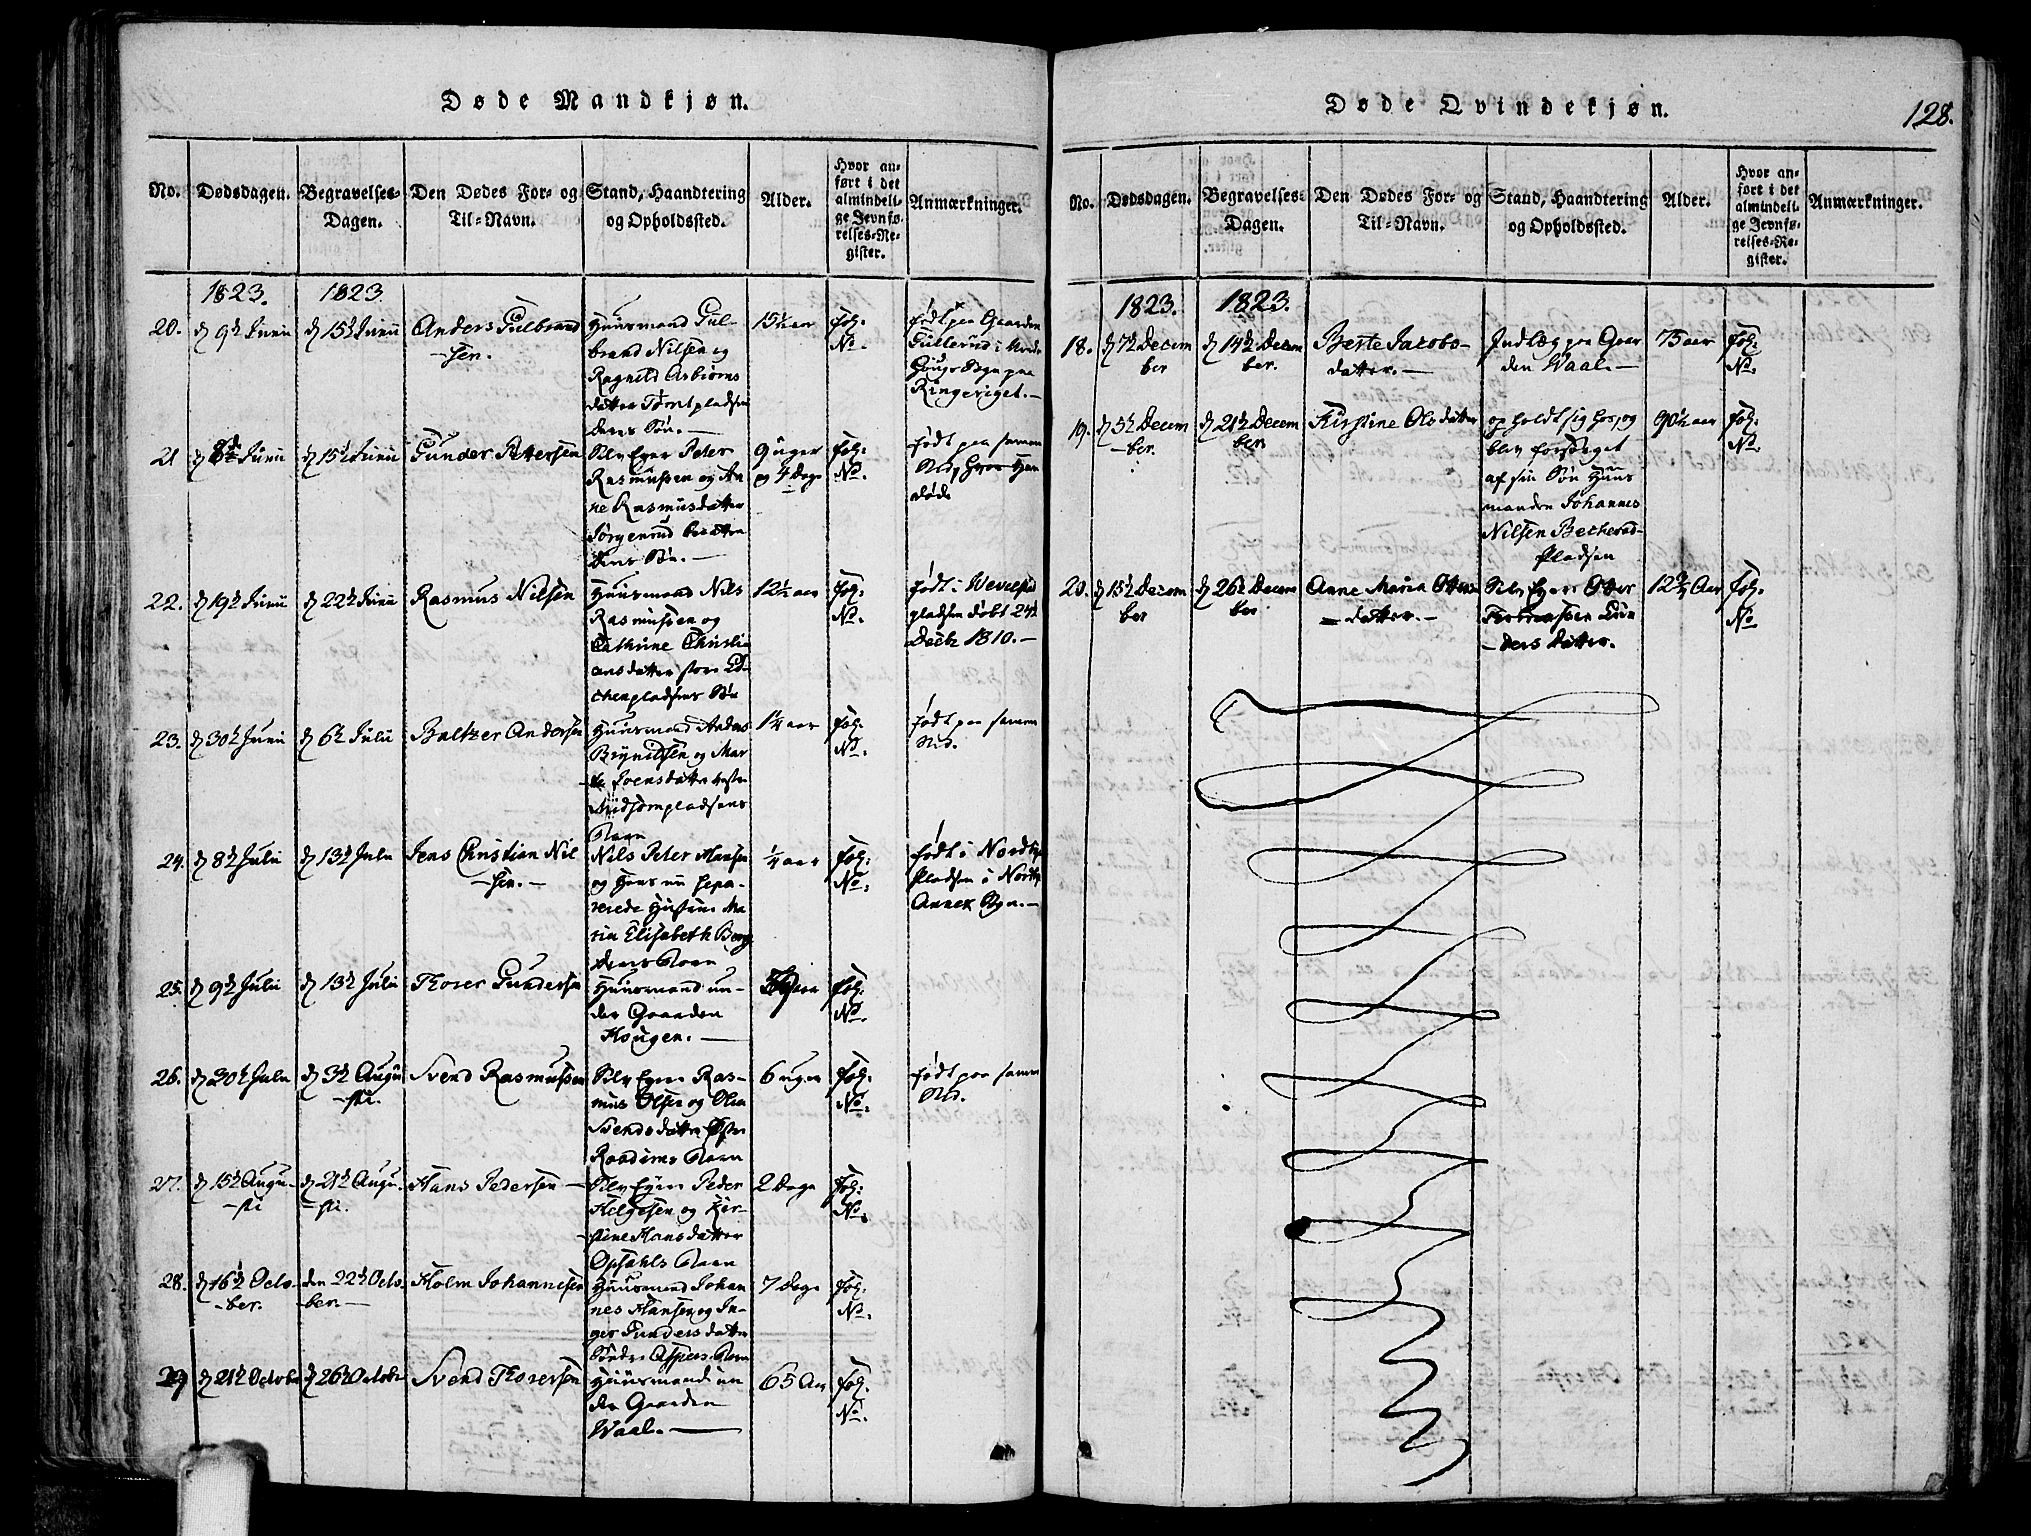 Døde Mandkjøn.
No.
Dødsdagen.
Begravelses-
Dagen.
Den Dødes For- og
Til-Navn.
Stand, Haandtering
og Opholdssted.
Alder.
Hvor an-
ført i det
almindeli-
ge Jevnfø-
relses-Re-
gister.
Anmærkninger.
1823.
1823
20.
d 9de Junii
d 15de Junii
Anders Gulbrand
-sen.
Huusmand Gul-
brand Nilsen og
Ragnild Asbiørns
datter
Søn. —
15½ aar
Fol:
No.
født paa Gaarden
Gullerud i
Ringeriget. —
21
Junii
d 15de Junii
Gunder Pettersen
Selv Eyer Peter
Rasmussen og An
ne Rasmusdatter
Jørgenrud
Søn. —
9 uger
og 4 Dage
Fol:
No.
født paa samme
Sted, hvor Han
døde
22.
d 19de Junii
d 22de Junii
Rasmus Nilsen
Huusmand Nils
Rasmussen og
Cathrine Christi
ansdatter store
Søn
12½ aar
Fol:
No.
født i
pladsen døbt 24de
Decbr 1810. —
23.
d 30te Junii
d 6te Julii
Baltzer Andersen
Huusmand Anders
Brynildsen og Mar
the Joensdatter
Barn
1¼ aar
Fol:
No.
født paa samme
Sted.
24.
d 8de Julii
d 13de Julii
Jens Christian Nil
-sen. —
Nils Peter Hansen
og Hans nu sepa-
rerede Hustrue Ma
ria Elisabeth Berg
Barn
¼ aar
Fol:
No.
født i
Pladsen i
Annex Sogn. —
25.
d 9de Julii
d 13de Julii
Thorer Gundersen
Huusmand un-
der Gaarden
Hougen. —
Fol:
No.
26.
d 30te Julii
d 3de Augu
-sti.
Svend Rasmussen
Selv Eyer Ras-
mus Olsen og Olia
Svendsdatter
Barn
6 uger
Fol:
No.
født paa samme
Sted.
27.
d 15de Augu-
-sti
d 21de Augu-
-sti.
Hans Pedersen —
Selv Eyer Peder
Helgesen og Kir-
stine Hansdatter
Opsahls Barn
2 Dage
Fol:
No.
28.
d 16de Octo-
-ber.
den 22de Octo-
ber. —
Holm Johannesen
Huusmand Johan
nes Hansen og In-
ger Gundersdatter
Søndre Aspers Barn
7 Dage
Fol:
No.
29
d 21de Octobr
d 26de Octobr
Svend Thorersen
Huusmand un
der Gaarden
Waal. —
65 Aar
Fol:
No.
Døde Qvindekjøn.
128.
No.
Dødsdagen.
Begravelses-
Dagen.
Den Dødes For- og
Til-Navn.
Stand, Haandtering
og Opholdssted.
Alder.
Hvor an-
ført i det
almindeli-
ge Jevnfø-
relses-Re-
gister.
Anmærkninger.
1823.
1823.
18.
d 7de Decem
ber
d 14de Decem
ber.
Berte Jacobs-
datter. —
Indlæg paa Gaar
den Waal. —
75 aar
Fol:
No.
19.
d 5te Decem
-ber.
d 21de Decem
ber
Kirstine Olsdatter
opholdt sig hos, og
blev forsørget
af sin Søn Huus
manden Johannes
Nilsen
Pladsen
90½ aar
Fol:
No.
20.
d 15de Decem
ber
d 26de Decem
ber
Anne Maria Otters
-datter. —
Selv Eyer Otter
-ders datter.
12¾ Aar
Fol:
No